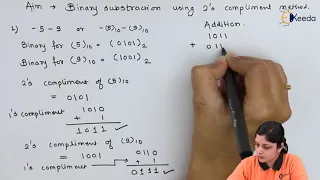 Aim → Binary substraction using 2's compliment method.
Ekeeda
1) -5-9 or -(5)10 -(9)10
Addition.
Binary for (5)10 = (0101)2
1011
+ 011
Binary for (9)10 = (1001)2
2's compliment of (5)10
= 0101
1's compliment 1010
+ 1
1011 ✓
2's compliment of (9)10
= 1001
1's compliment → 0110
+ 1
0111 ✓